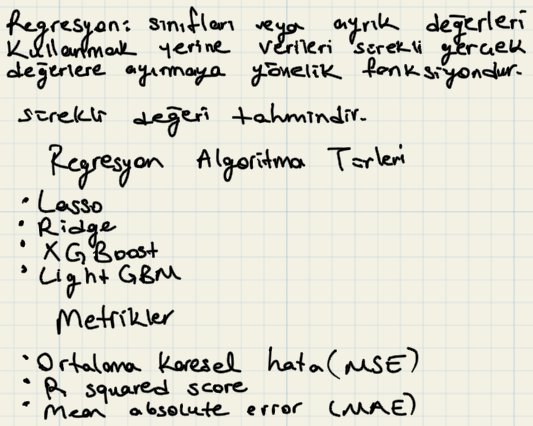 Regresyon: sınıfları veya ayrık değerleri
Kullanmak yerine verileri sürekli gerçek
değerlere ayırmaya yönelik fonksiyondur.
sürekli değeri tahmindir.
Regresyon Algoritma Türleri
• Lasso
• Ridge
• XGBoost
• Light GBM
Metrikler
• Ortalama Karesel hata (MSE)
• R squared score
• Mean absolute error (MAE)